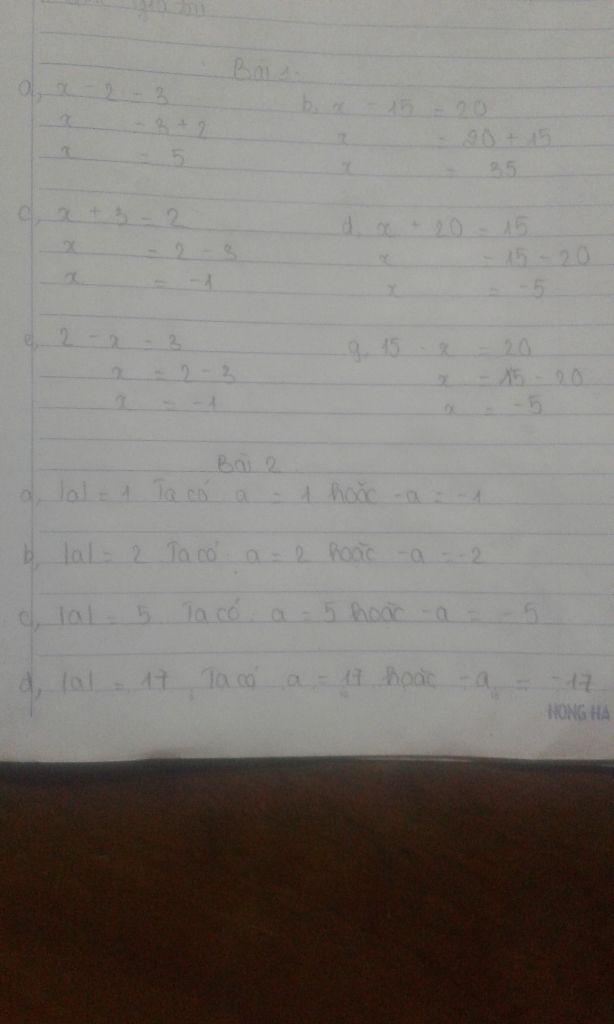 Bài 1.
a, x - 2 = 3 b, x - 15 = 20
x = 3 + 2 x = 20 + 15
x = 5 x = 35
c, x + 3 = 2 d, x + 20 = 15
x = 2 - 3 x = 15 - 20
x = -1 x = -5
e, 2 - x = 3 g, 15 - x = 20
x = 2 - 3 x = 15 - 20
x = -1 x = -5
Bài 2
a, |a| = 1 Ta có a = 1 hoặc -a = -1
b, |a| = 2 Ta có a = 2 hoặc -a = -2
c, |a| = 5 Ta có a = 5 hoặc -a = -5
d, |a| = 17 Ta có a = 17 hoặc -a = -17
HONG HA